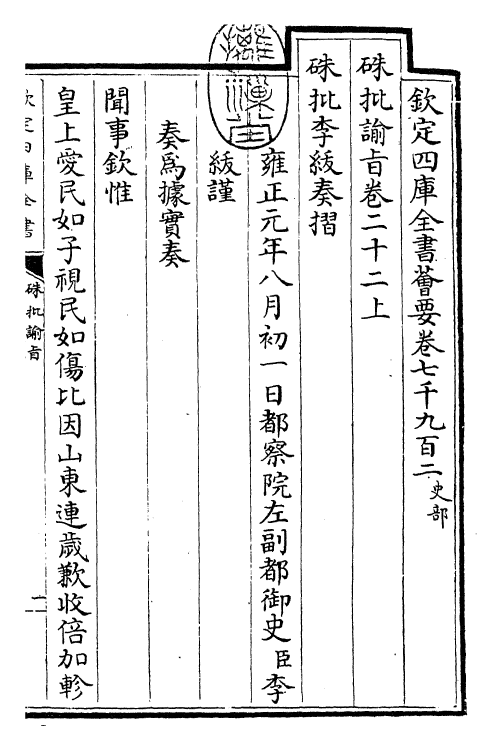 欽定四庫全書薈要卷七千九百二史部
硃批諭旨卷二十二上
硃批李紱奏摺
雍正元年八月初一日都察院左副都御史臣李
紱謹
奏爲據實奏
聞事欽惟
皇上愛民如子視民如傷比因山東連歲歉收倍加軫
欽定四庫全書
硃批諭旨